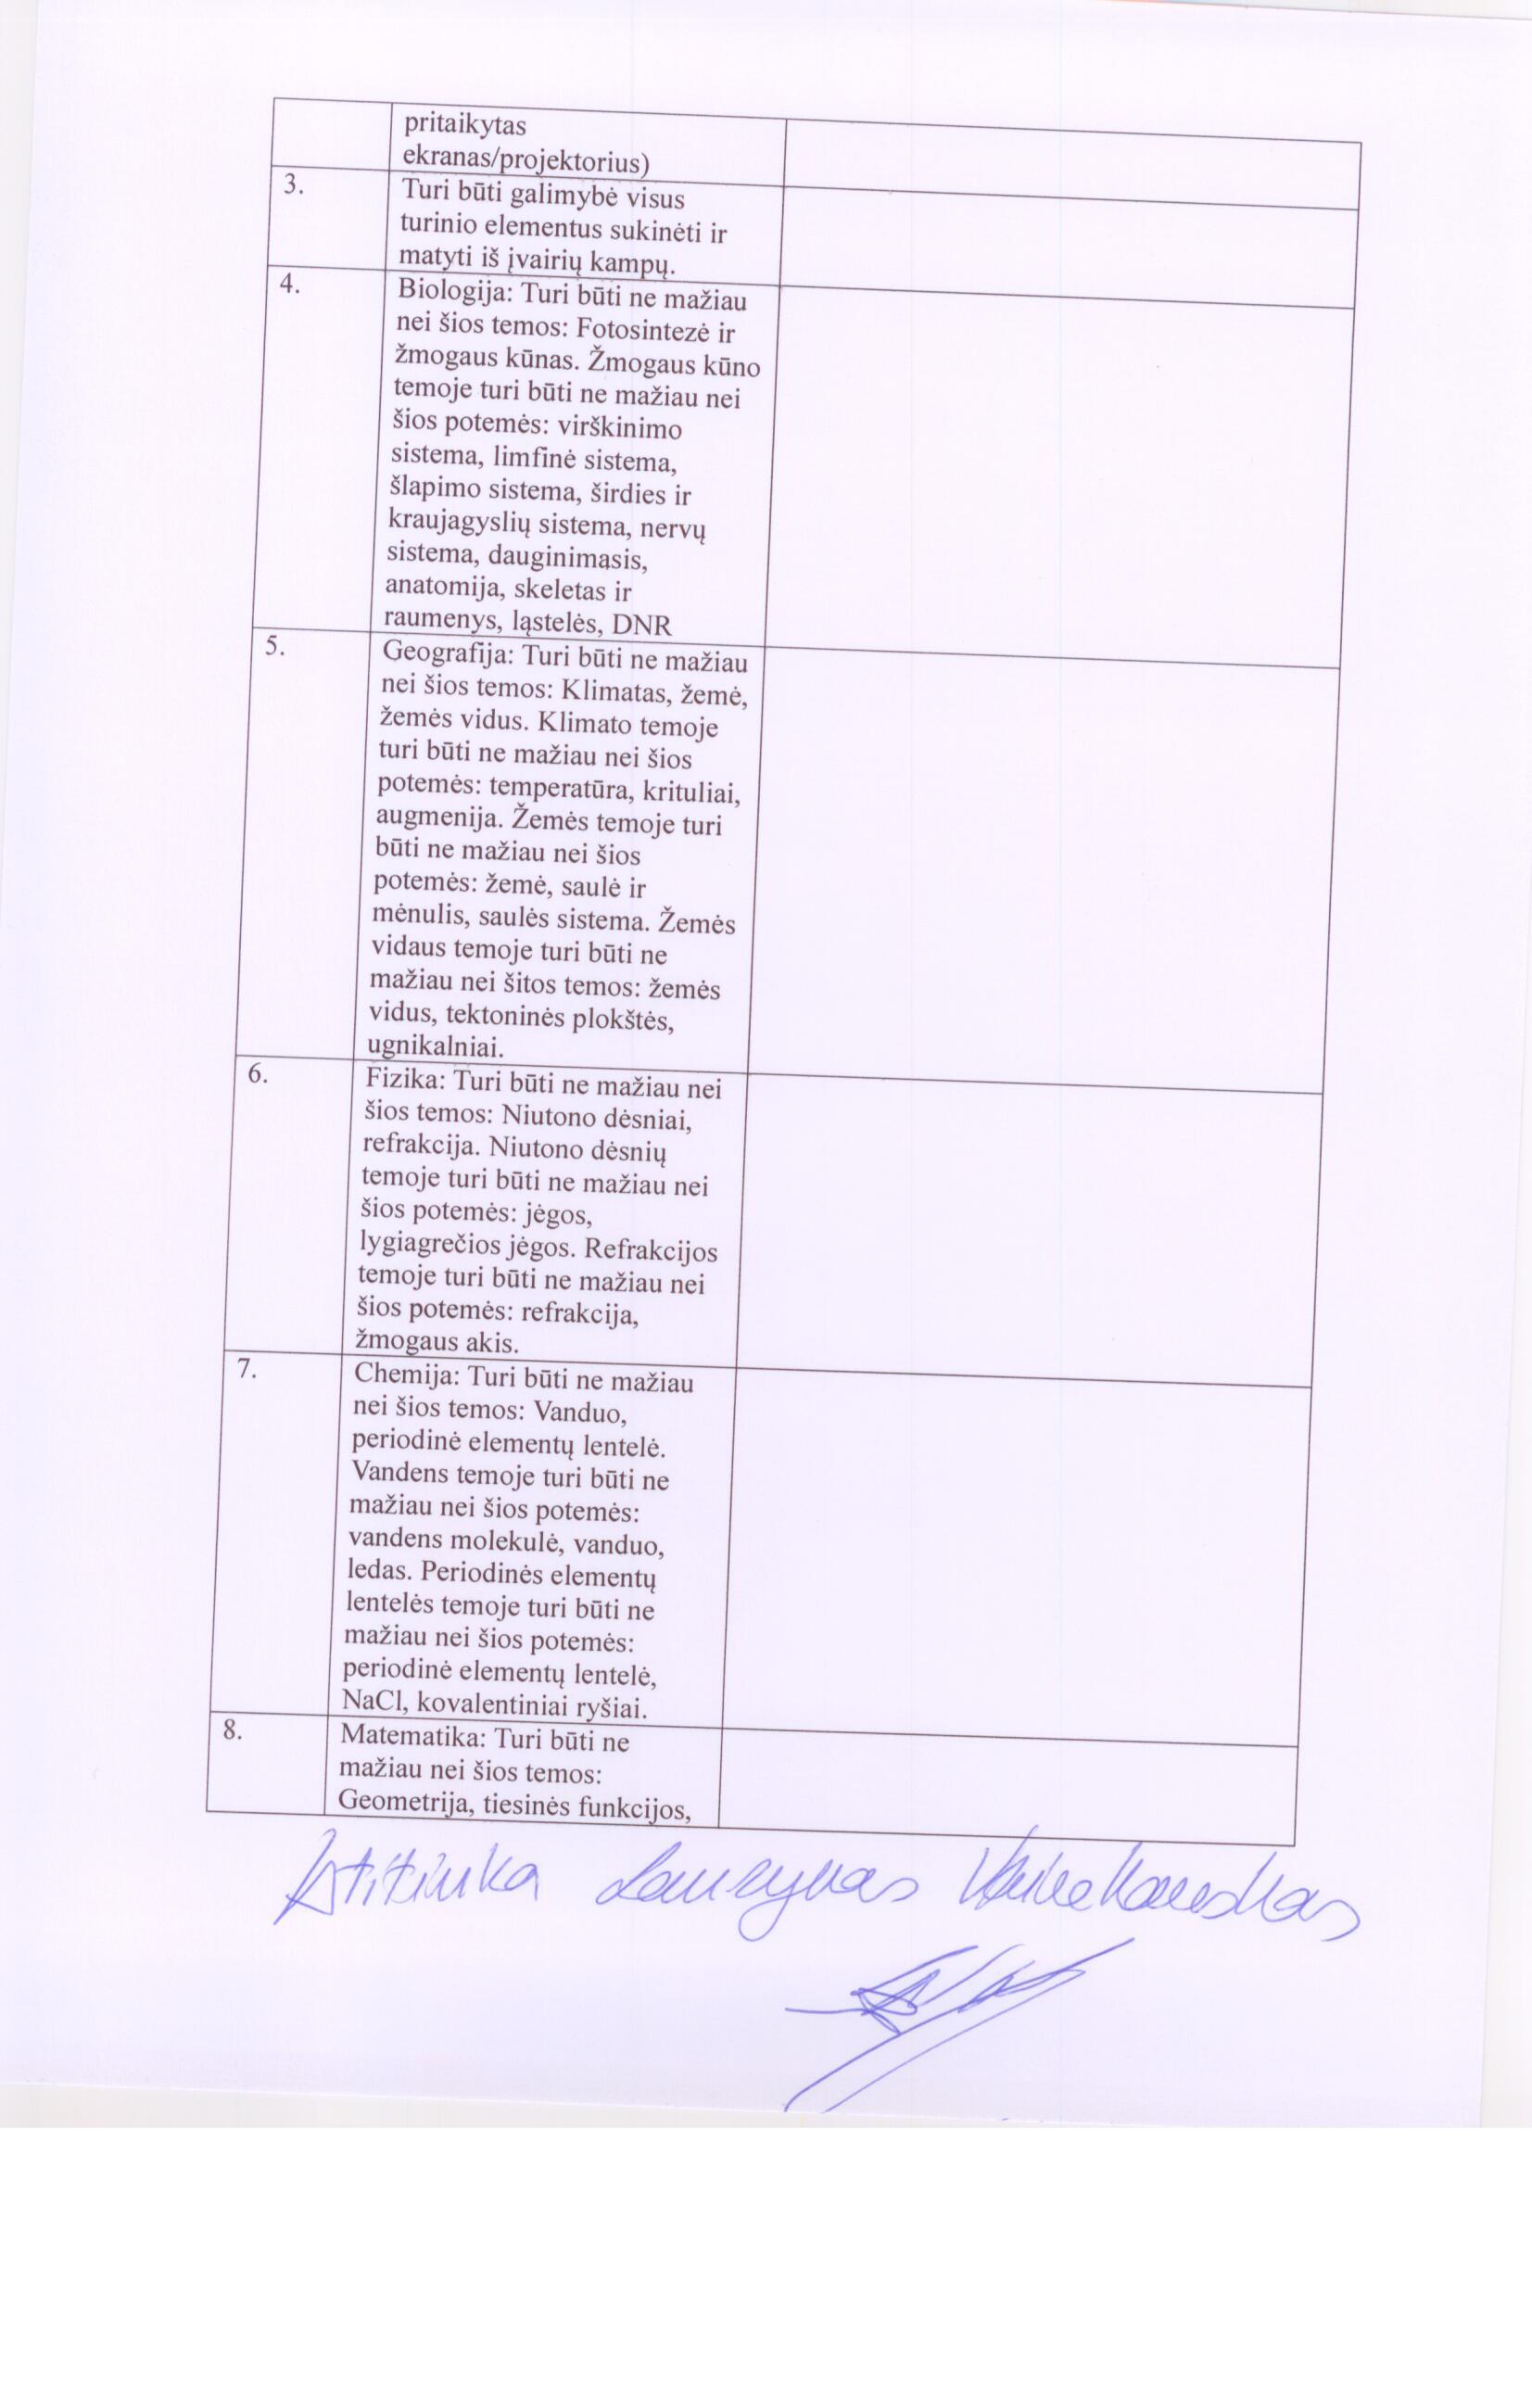 pritaikytas
ekranas/projektorius)
3.
Turi būti galimybė visus
turinio elementus sukinėti ir
matyti iš įvairių kampų.
4.
Biologija: Turi būti ne mažiau
nei šios temos: Fotosintezė ir
žmogaus kūnas. Žmogaus kūno
temoje turi būti ne mažiau nei
šios potemės: virškinimo
sistema, limfinė sistema,
šlapimo sistema, širdies ir
kraujagyslių sistema, nervų
sistema, dauginimasis,
anatomija, skeletas ir
raumenys, ląstelės, DNR
5.
Geografija: Turi būti ne mažiau
nei šios temos: Klimatas, žemė,
žemės vidus. Klimato temoje
turi būti ne mažiau nei šios
potemės: temperatūra, krituliai,
augmenija. Žemės temoje turi
būti ne mažiau nei šios
potemės: žemė, saulė ir
mėnulis, saulės sistema. Žemės
vidaus temoje turi būti ne
mažiau nei šitos temos: žemės
vidus, tektoninės plokštės,
ugnikalniai.
6.
Fizika: Turi būti ne mažiau nei
šios temos: Niutono dėsniai,
refrakcija. Niutono dėsnių
temoje turi būti ne mažiau nei
šios potemės: jėgos,
lygiagrečios jėgos. Refrakcijos
temoje turi būti ne mažiau nei
šios potemės: refrakcija,
žmogaus akis.
7.
Chemija: Turi būti ne mažiau
nei šios temos: Vanduo,
periodinė elementų lentelė.
Vandens temoje turi būti ne
mažiau nei šios potemės:
vandens molekulė, vanduo,
ledas. Periodinės elementų
lentelės temoje turi būti ne
mažiau nei šios potemės:
periodinė elementų lentelė,
NaCl, kovalentiniai ryšiai.
8.
Matematika: Turi būti ne
mažiau nei šios temos:
Geometrija, tiesinės funkcijos,
Atitinka Laurynas